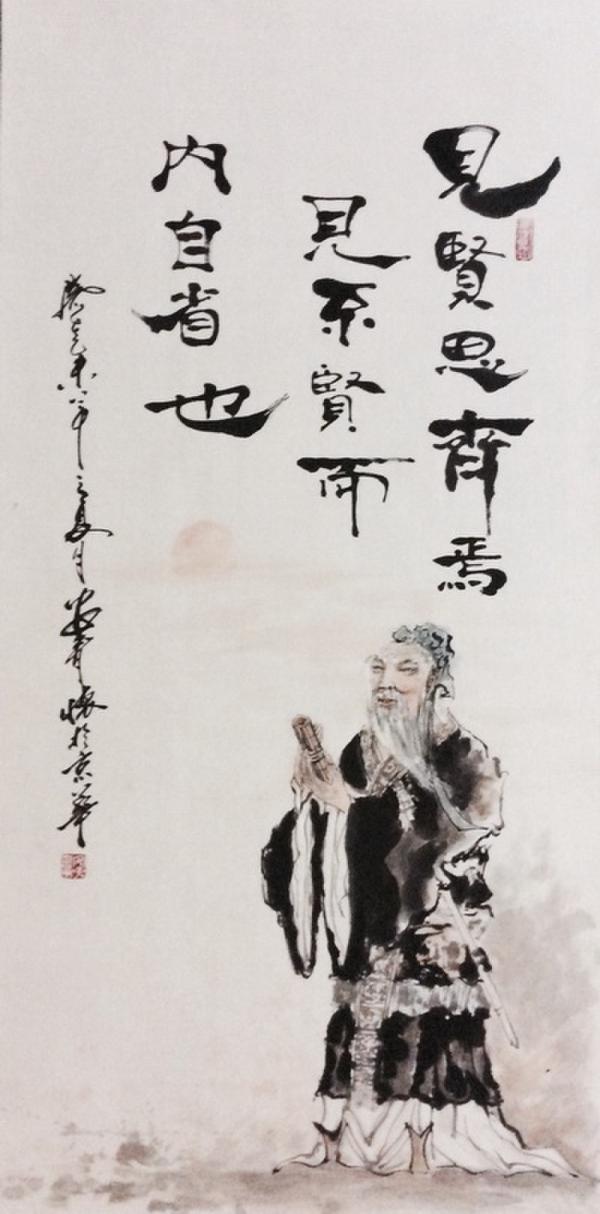 見賢思齊焉
見不賢而
内自省也
癸巳年之夏月於京華